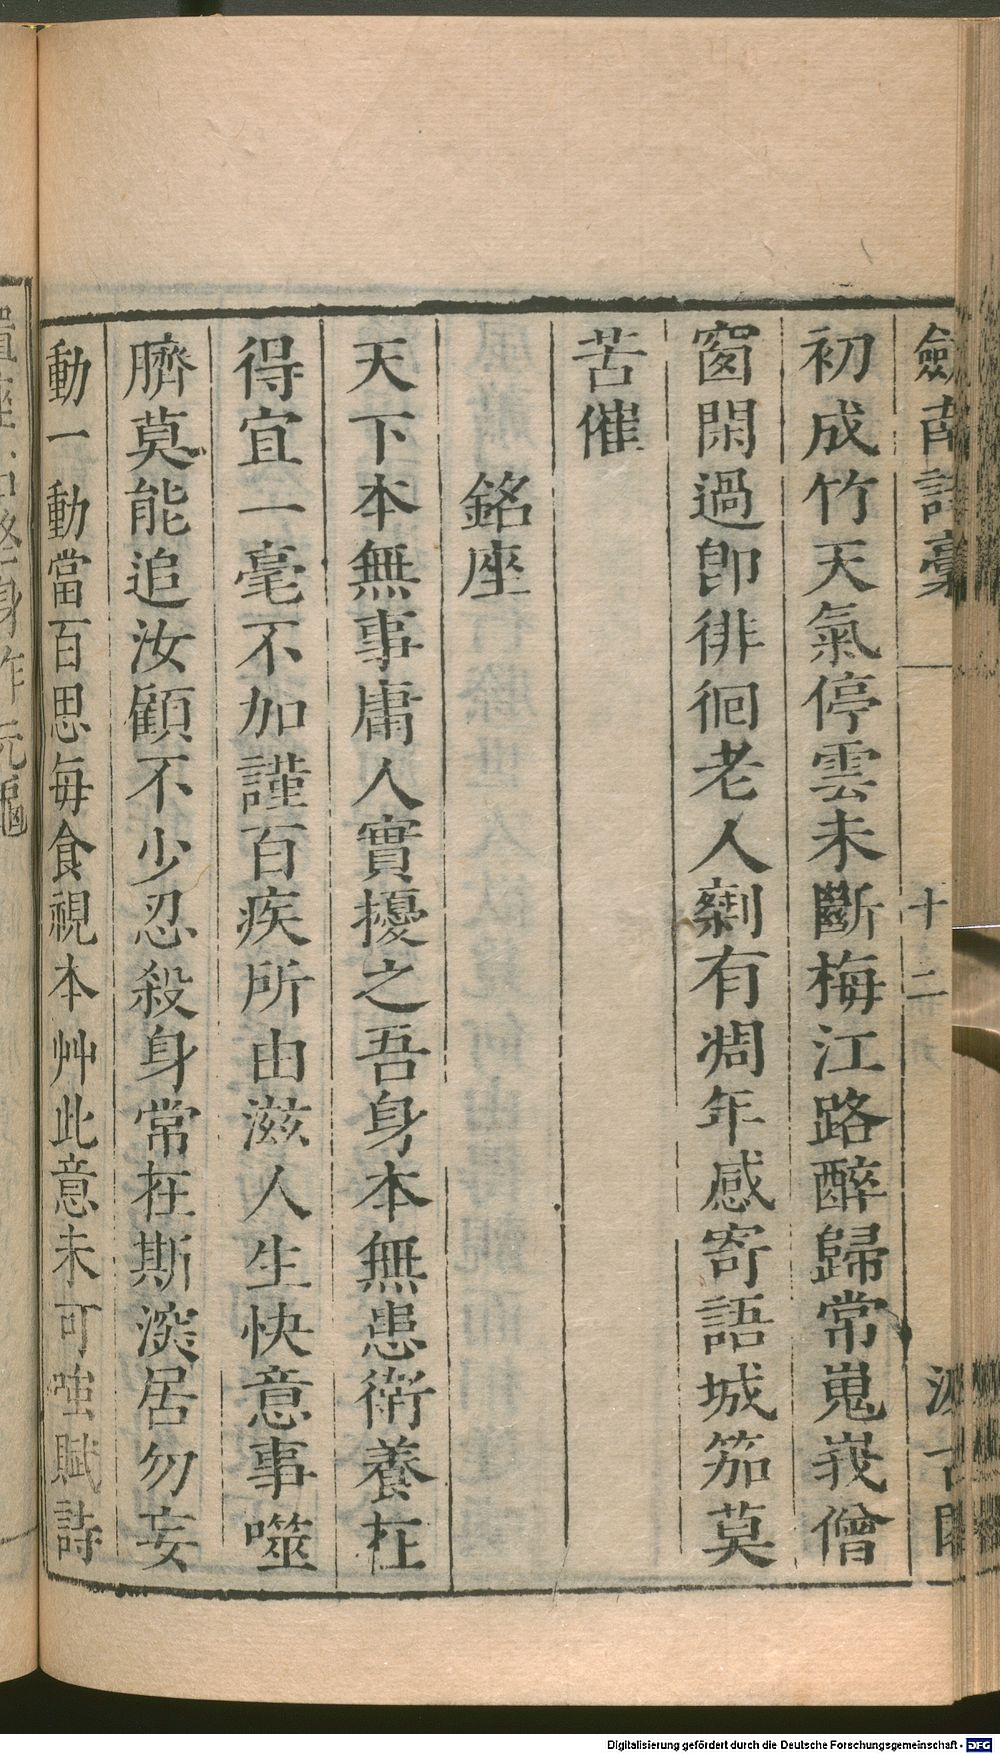 劔南詩藁 十二 汲古閣
初成竹天氣停雲未斷梅江路醉歸常嵬峩僧
窗閑過卽徘徊老人劇有凋年感寄語城笳莫
苦催
銘座
天下本無事庸人實擾之吾身本無患衛養在
得宜一毫不加謹百疾所由滋人生快意事噬
臍莫能追汝顧不少忍殺身常在斯深居勿妄
動一動當百思每食視本艸此意未可嗤賦詩
置座右終身作元龜
Digitalisierung gefördert durch die Deutsche Forschungsgemeinschaft - DFG